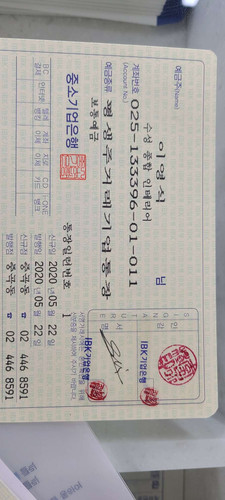 예금주(Name) 이영석 님
수성 종합 인테리어
계좌번호 025-133396-01-011
(Account No.)
예금종류 평생주거래기업통장
보통예금
중소기업은행
통장일련번호 1
신규일 2020 년 05 월 22 일
발행일 2020 년 05 월 22 일
신규점 중곡동 ☎ 02 446 8591
발행점 중곡동 ☎ 02 446 8591
SIGNATURE
서명
인감
IBK기업은행
IBK기업은행